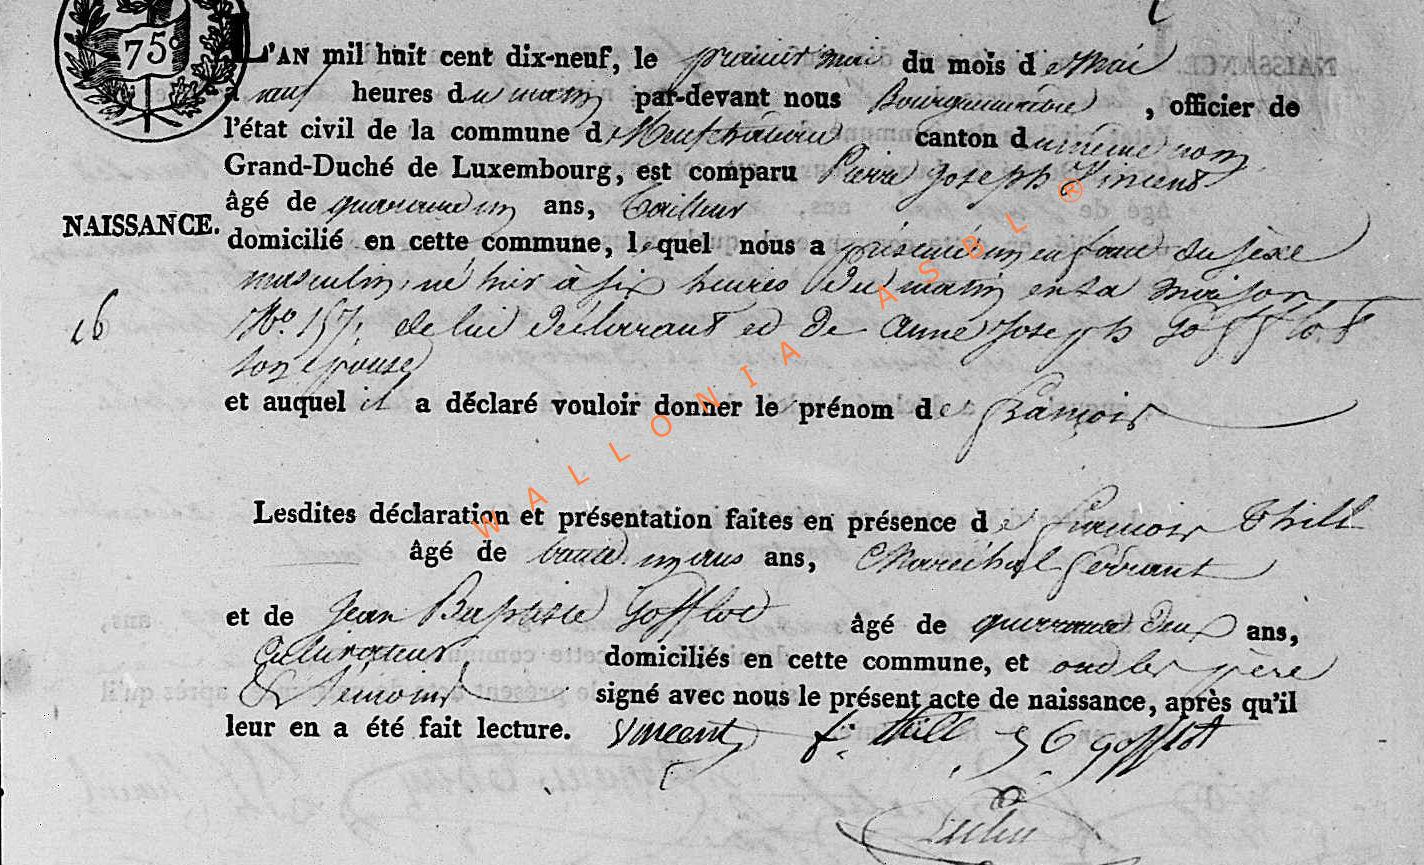 75c
L'AN mil huit cent dix-neuf, le premier mai du mois de Mai
à neuf heures du matin par-devant nous Bourguemaitre , officier de
l'état civil de la commune de Neufchâteau canton du même nom
Grand-Duché de Luxembourg, est comparu Pierre Joseph Vincent
âgé de quarante un ans, Tailleur
NAISSANCE.
domicilié en cette commune, lequel nous a présenté un enfant du sexe
masculin, né hier à six heures du matin en sa maison
16
No 157, de lui déclarant et de Anne Joseph Gofflot
son épouse
et auquel il a déclaré vouloir donner le prénom de François
Lesdites déclaration et présentation faites en présence de François Thill
âgé de trente un ans ans, Maréchal ferrant
et de Jean Baptiste Gofflot âgé de quarante deux ans,
Cultivateur, domiciliés en cette commune, et ont les père
& témoins signé avec nous le présent acte de naissance, après qu'il
leur en a été fait lecture. Vincent f. thill JB gofflot
WALLONIA ASBL ®